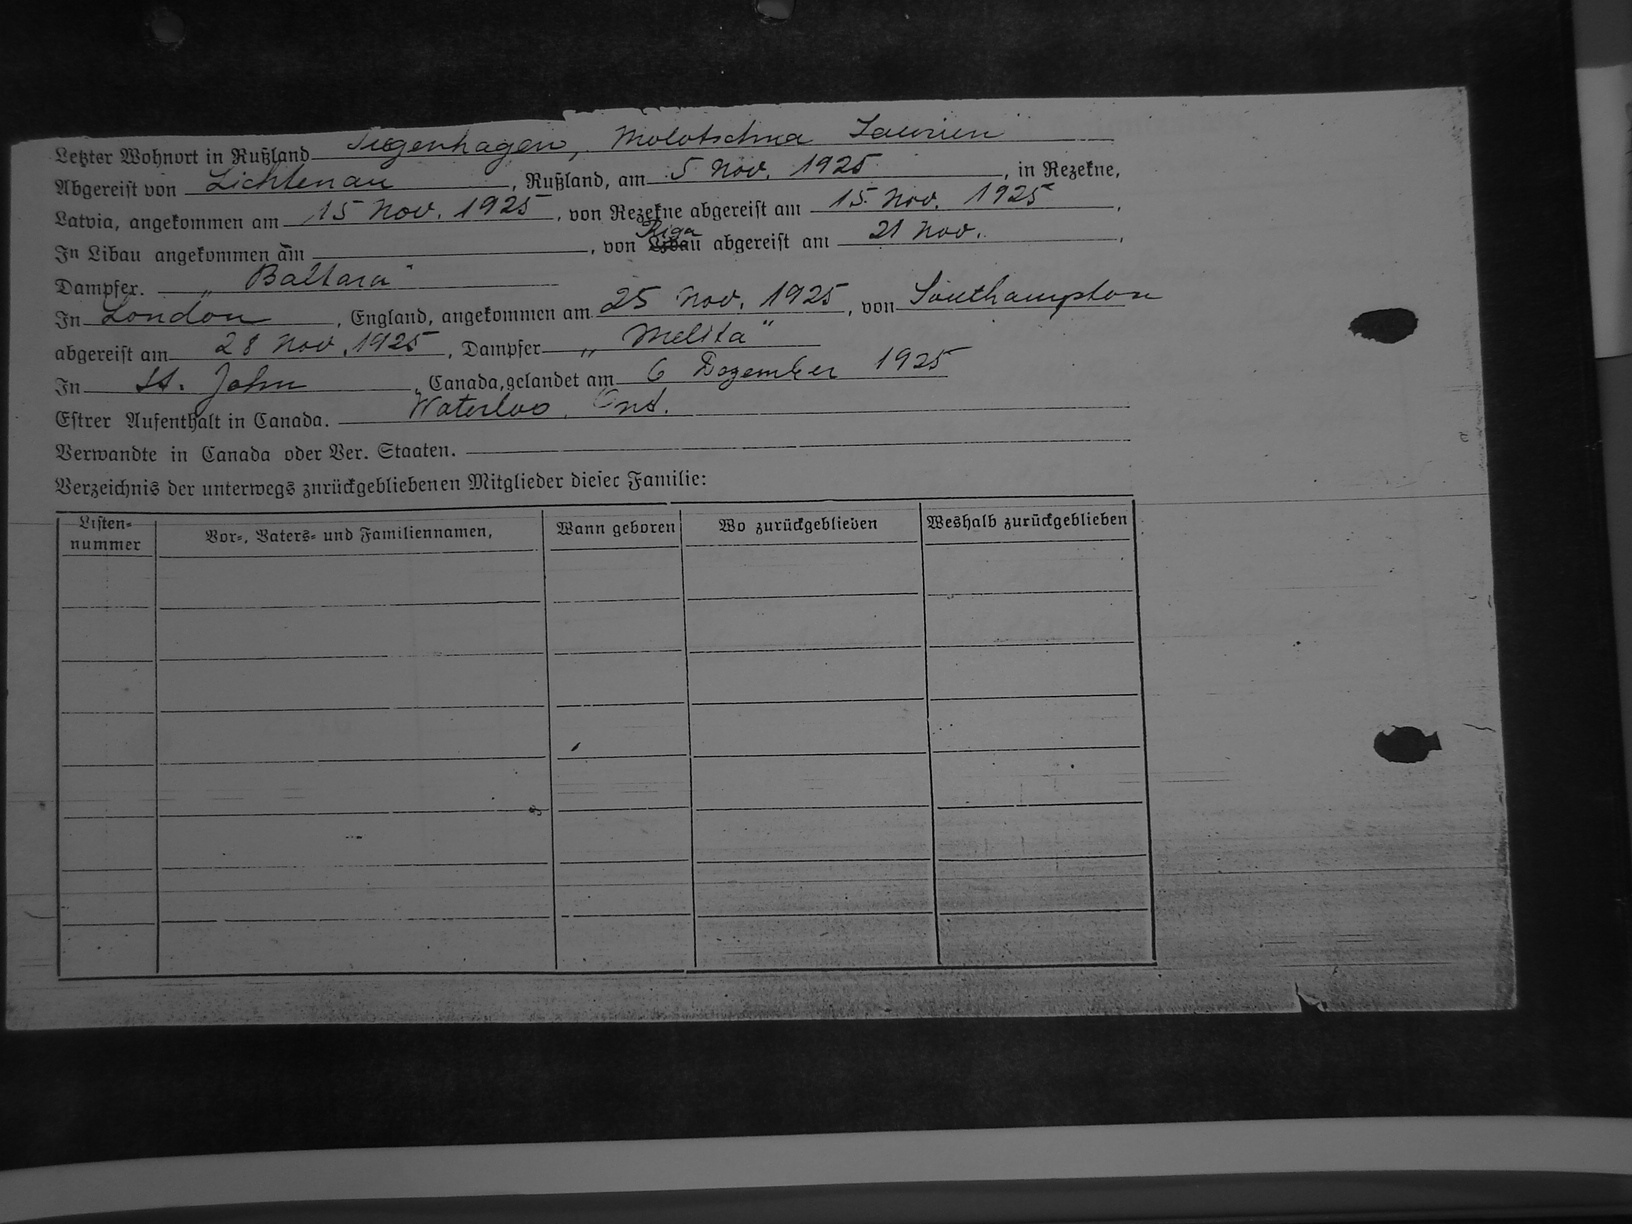 Letzter Wohnort in Rußland Tiegenhagen, Molotschna Taurien
Abgereist von Lichtenau, Rußland, am 5 Nov. 1925, in Rezekne,
Latvia, angekommen am 15 Nov. 1925, von Rezekne abgereist am 15. Nov. 1925,
In Libau angekommen am , von Libau Riga abgereist am 21 Nov. ,
Dampfer. „Baltara"
In London, England, angekommen am 25 Nov. 1925, von Southampton
abgereist am 28 Nov. 1925, Dampfer „Melita"
In St. John, Canada, gelandet am 6 Dezember 1925
Estrer Aufenthalt in Canada. Waterloo, Ont.
Verwandte in Canada oder Ver. Staaten.
Verzeichnis der unterwegs znrückgebliebenen Mitglieder diesec Familie:
Listen-
nummer
Vor-, Vaters- und Familiennamen,
Wann geboren
Wo zurückgeblieben
Weshalb zurückgeblieben